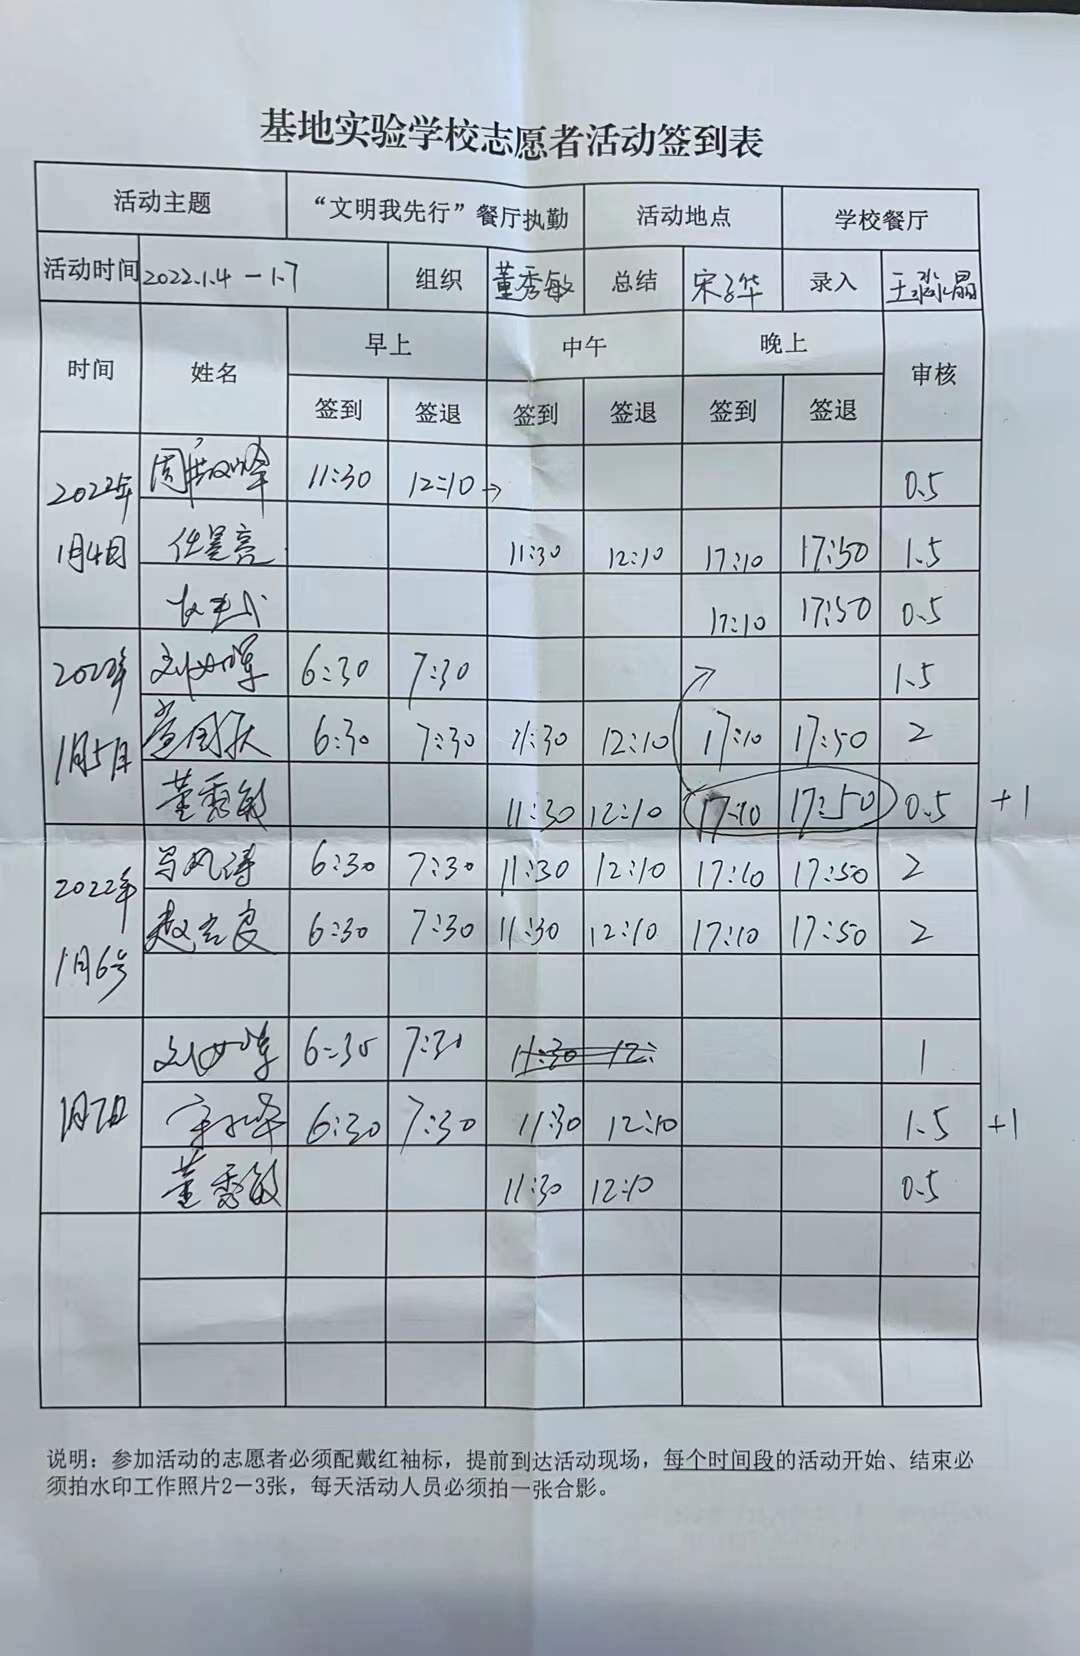 基地实验学校志愿者活动签到表
活动主题 “文明我先行”餐厅执勤 活动地点 学校餐厅
活动时间 2022.1.4－1.7 组织 董秀敏 总结 宋子华 录入 王淼晶
时间 姓名 早上 中午 晚上 审核
签到 签退 签到 签退 签到 签退
2022年
1月4日
11:30 12:10 → 0.5
任星亮 11:30 12:10 17:10 17:50 1.5
17:10 17:50 0.5
2022年
1月5日
6:30 7:30 1.5
6:30 7:30 11:30 12:10 17:10 17:50 2
董秀敏 11:30 12:10 17:10 17:50 0.5 +1
2022年
1月6号
马风涛 6:30 7:30 11:30 12:10 17:10 17:50 2
6:30 7:30 11:30 12:10 17:10 17:50 2
1月7日
6:30 7:30 11:30 12: 1
6:30 7:30 11:30 12:10 1.5 +1
董秀敏 11:30 12:10 0.5
说明：参加活动的志愿者必须配戴红袖标，提前到达活动现场，每个时间段的活动开始、结束必
须拍水印工作照片2－3张，每天活动人员必须拍一张合影。